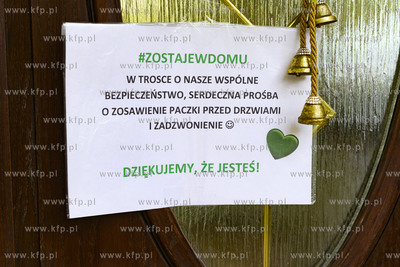 #ZOSTAJEWDOMU
W TROSCE O NASZE WSPÓLNE
BEZPIECZEŃSTWO, SERDECZNA PROŚBA
O ZOSAWIENIE PACZKI PRZED DRZWIAMI
I ZADZWONIENIE ☺
DZIĘKUJEMY, ŻE JESTEŚ!
www.kfp.pl